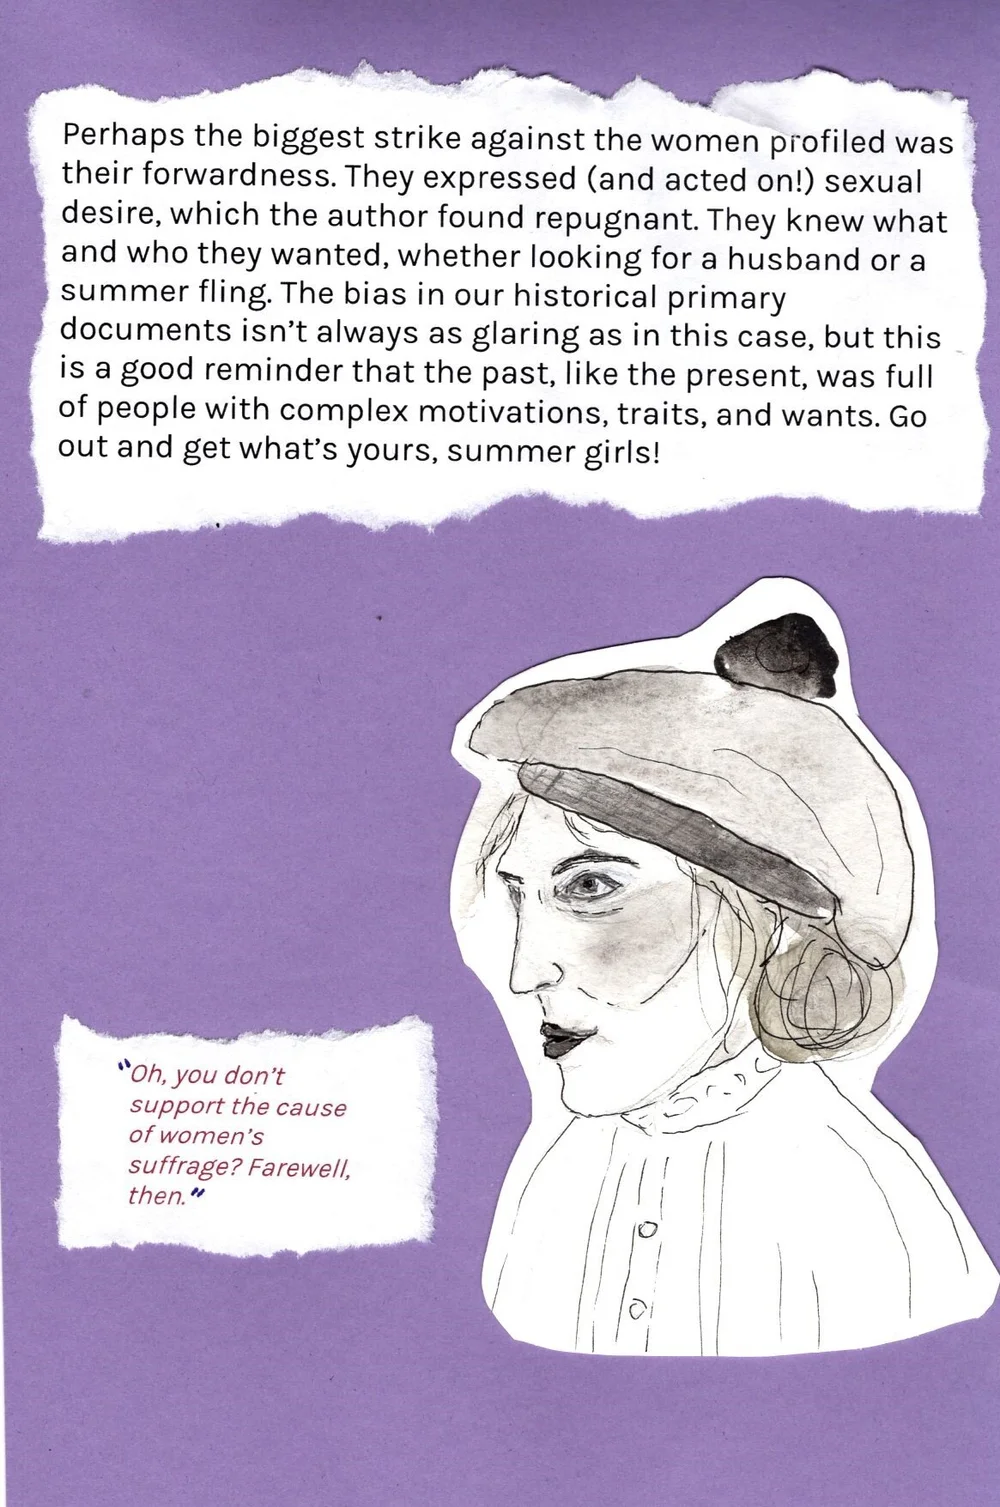 Perhaps the biggest strike against the women profiled was
their forwardness. They expressed (and acted on!) sexual
desire, which the author found repugnant. They knew what
and who they wanted, whether looking for a husband or a
summer fling. The bias in our historical primary
documents isn't always as glaring as in this case, but this
is a good reminder that the past, like the present, was full
of people with complex motivations, traits, and wants. Go
out and get what's yours, summer girls!
"Oh, you don't
support the cause
of women's
suffrage? Farewell,
then."